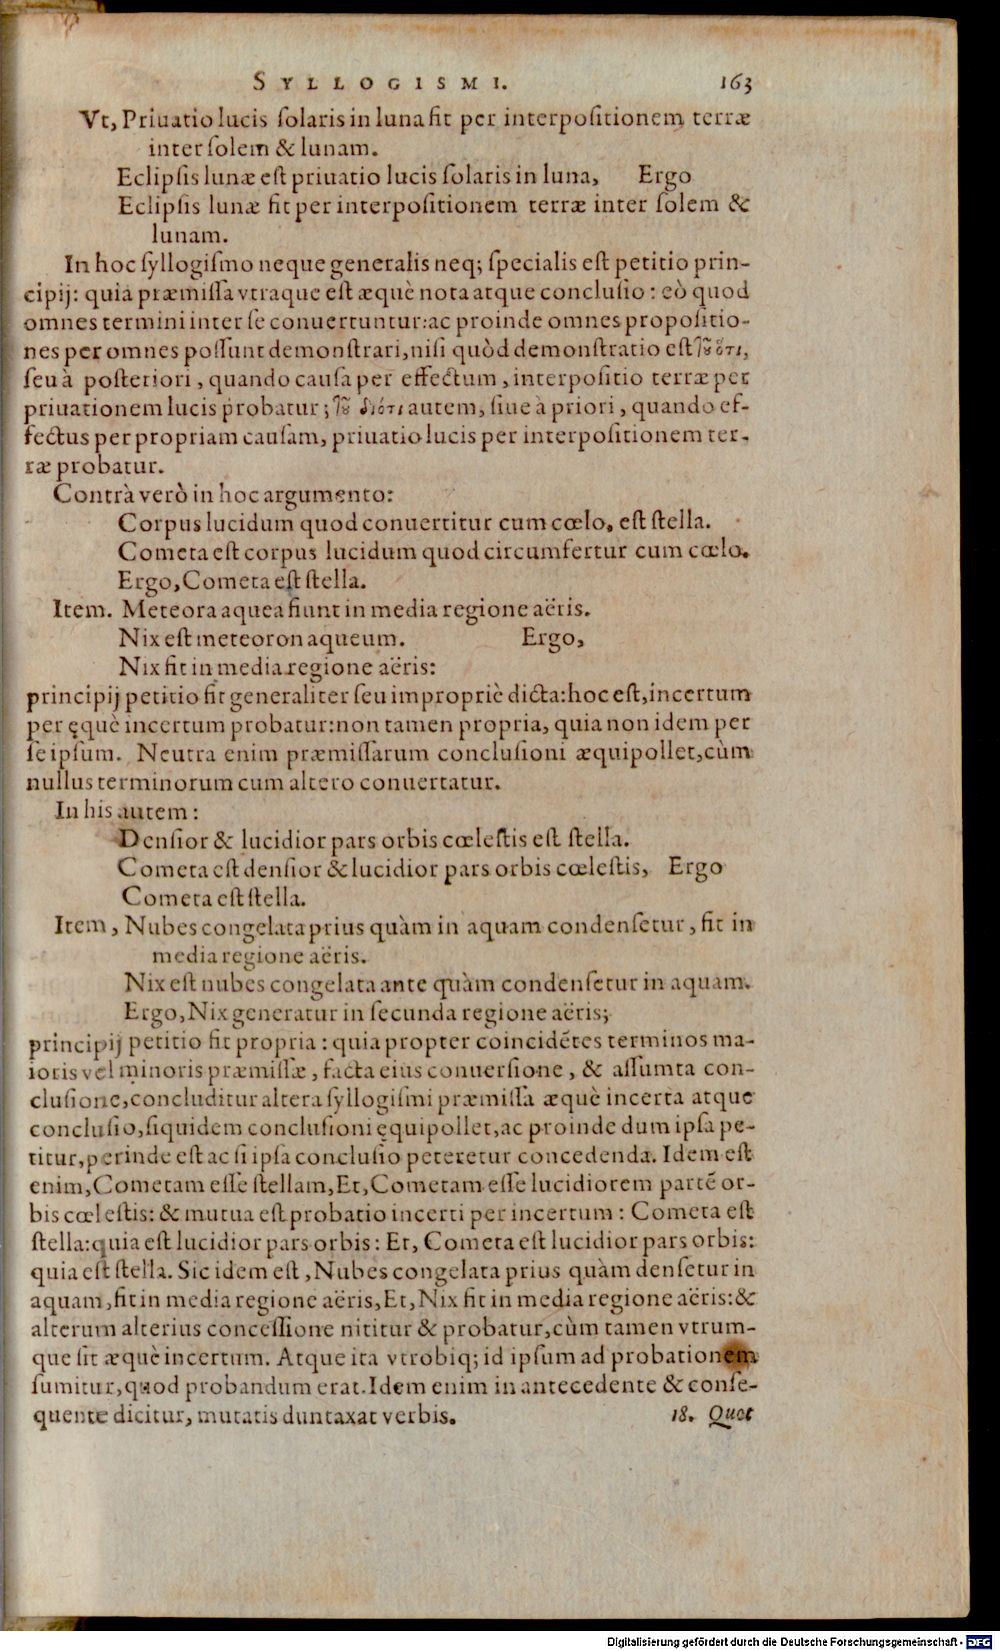 SYLLOGISMI. 163
Vt, Priuatio lucis ſolaris in luna fit per interpoſitionem terræ
inter ſolem & lunam.
Eclipſis lunæ eſt priuatio lucis ſolaris in luna, Ergo
Eclipſis lunæ fit per interpoſitionem terræ inter ſolem &
lunam.
In hoc ſyllogiſmo neque generalis neq; ſpecialis eſt petitio prin-
cipij: quia præmiſſa vtraque eſt æquè nota atque concluſio: eò quod
omnes termini inter ſe conuertuntur: ac proinde omnes propoſitio-
nes per omnes poſſunt demonſtrari, niſi quòd demonſtratio eſt τοῦ ὅτι,
ſeu à poſteriori, quando cauſa per effectum, interpoſitio terræ per
priuationem lucis probatur; τοῦ διότι autem, ſiue à priori, quando ef-
fectus per propriam cauſam, priuatio lucis per interpoſitionem ter-
ræ probatur.
Contrà verò in hoc argumento:
Corpus lucidum quod conuertitur cum cœlo, eſt ſtella.
Cometa eſt corpus lucidum quod circumfertur cum cœlo.
Ergo, Cometa eſt ſtella.
Item. Meteora aquea fiunt in media regione aëris.
Nix eſt meteoron aqueum. Ergo,
Nix fit in media regione aëris:
principij petitio fit generaliter ſeu impropriè dicta: hoc eſt, incertum
per ęquè incertum probatur: non tamen propria, quia non idem per
ſeipſum. Neutra enim præmiſſarum concluſioni æquipollet, cùm
nullus terminorum cum altero conuertatur.
In his autem:
Denſior & lucidior pars orbis cœleſtis eſt ſtella.
Cometa eſt denſior & lucidior pars orbis cœleſtis, Ergo
Cometa eſt ſtella.
Item, Nubes congelata prius quàm in aquam condenſetur, fit in
media regione aëris.
Nix eſt nubes congelata ante quàm condenſetur in aquam.
Ergo, Nix generatur in ſecunda regione aëris;
principij petitio fit propria: quia propter coincidẽtes terminos ma-
ioris vel minoris præmiſſæ, facta eius conuerſione, & aſſumta con-
cluſione, concluditur altera ſyllogiſmi præmiſſa æquè incerta atque
concluſio, ſiquidem concluſioni ęquipollet, ac proinde dum ipſa pe-
titur, perinde eſt ac ſi ipſa concluſio peteretur concedenda. Idem eſt
enim, Cometam eſſe ſtellam, Et, Cometam eſſe lucidiorem partẽ or-
bis cœleſtis: & mutua eſt probatio incerti per incertum: Cometa eſt
ſtella: quia eſt lucidior pars orbis: Et, Cometa eſt lucidior pars orbis:
quia eſt ſtella. Sic idem eſt, Nubes congelata prius quàm denſetur in
aquam, fit in media regione aëris, Et, Nix fit in media regione aëris: &
alterum alterius conceſſione nititur & probatur, cùm tamen vtrum-
que ſit æquè incertum. Atque ita vtrobiq; id ipſum ad probationem
ſumitur, quod probandum erat. Idem enim in antecedente & conſe-
quente dicitur, mutatis duntaxat verbis. 18. Quot
Digitalisierung gefördert durch die Deutsche Forschungsgemeinschaft - DFG